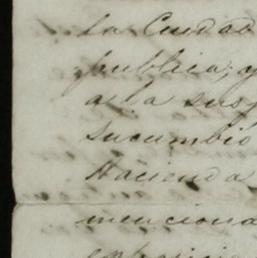 la Ciudad
publica, y
a la sus
sucumbió
Hacienda
menciona